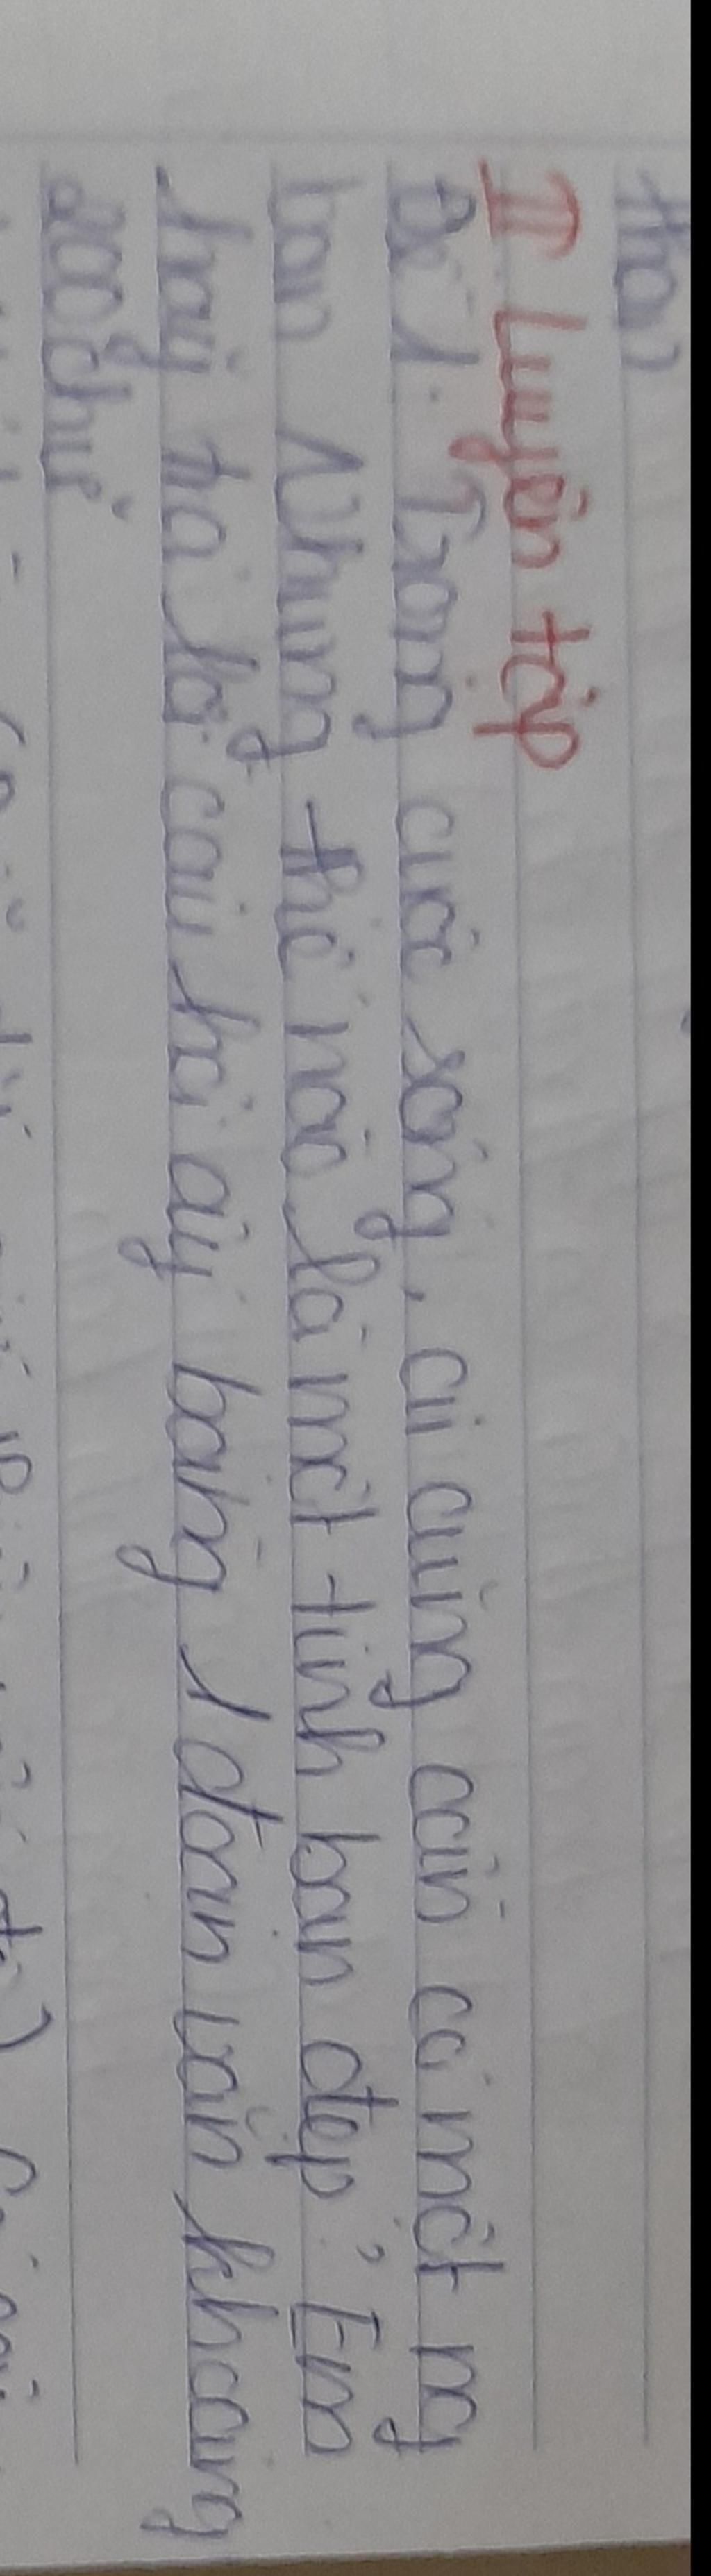 II Luyện tập
Đề 1. Trong cuộc sống, ai cũng cần có một ng
bạn. Nhưng thế nào là một tình bạn đẹp? Em
hãy trả lời câu hỏi ấy bằng 1 đoạn văn khoảng
200 chữ